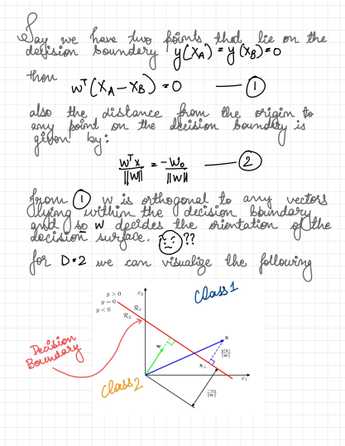 Say we have two points that lie on the
decision boundary y(x_A) = y(x_B) = 0
then
w^T(x_A - x_B) = 0 —— ①
also the distance from the origin to
any point on the decision boundary is
given by:
w^T x / ||w|| = -w_0 / ||w|| —— ②
from ① w is orthogonal to any vectors
lying within the decision boundary
and so w decides the orientation of the
decision surface. ??
for D=2 we can visualize the following
Class 1
y > 0
y = 0
y < 0
R_1
R_2
Decision
Boundary
w
x
Class 2